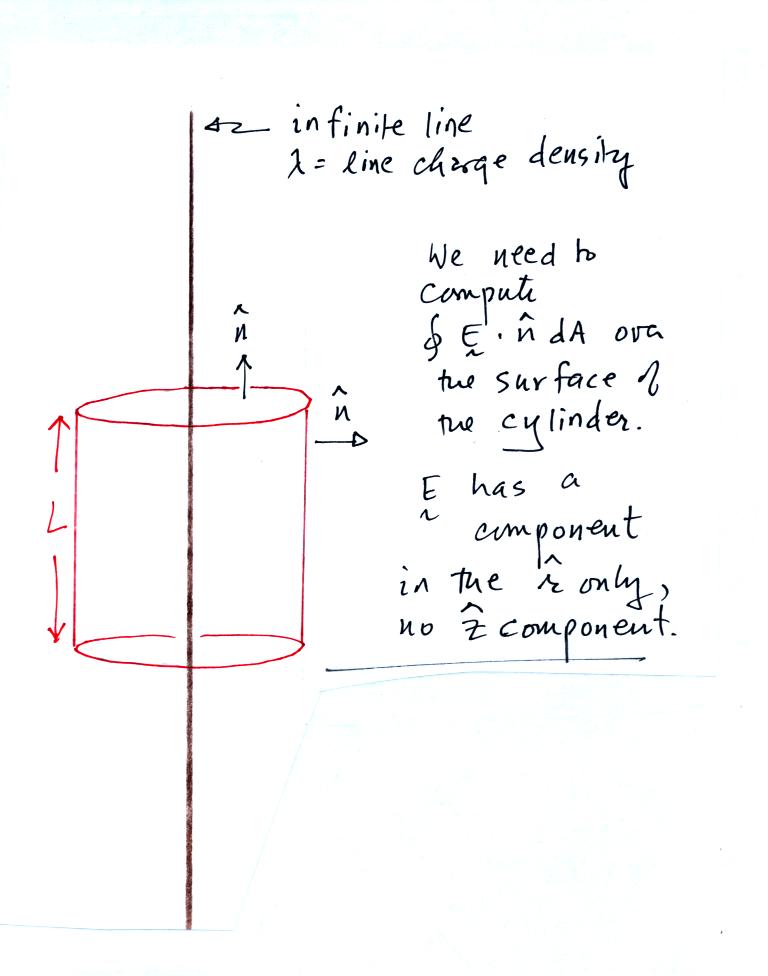 infinite line
λ = line charge density
We need to
compute
∮ E · n̂ dA over
the surface of
the cylinder.
n̂
n̂
L
E has a
component
in the r̂ only,
no ẑ component.